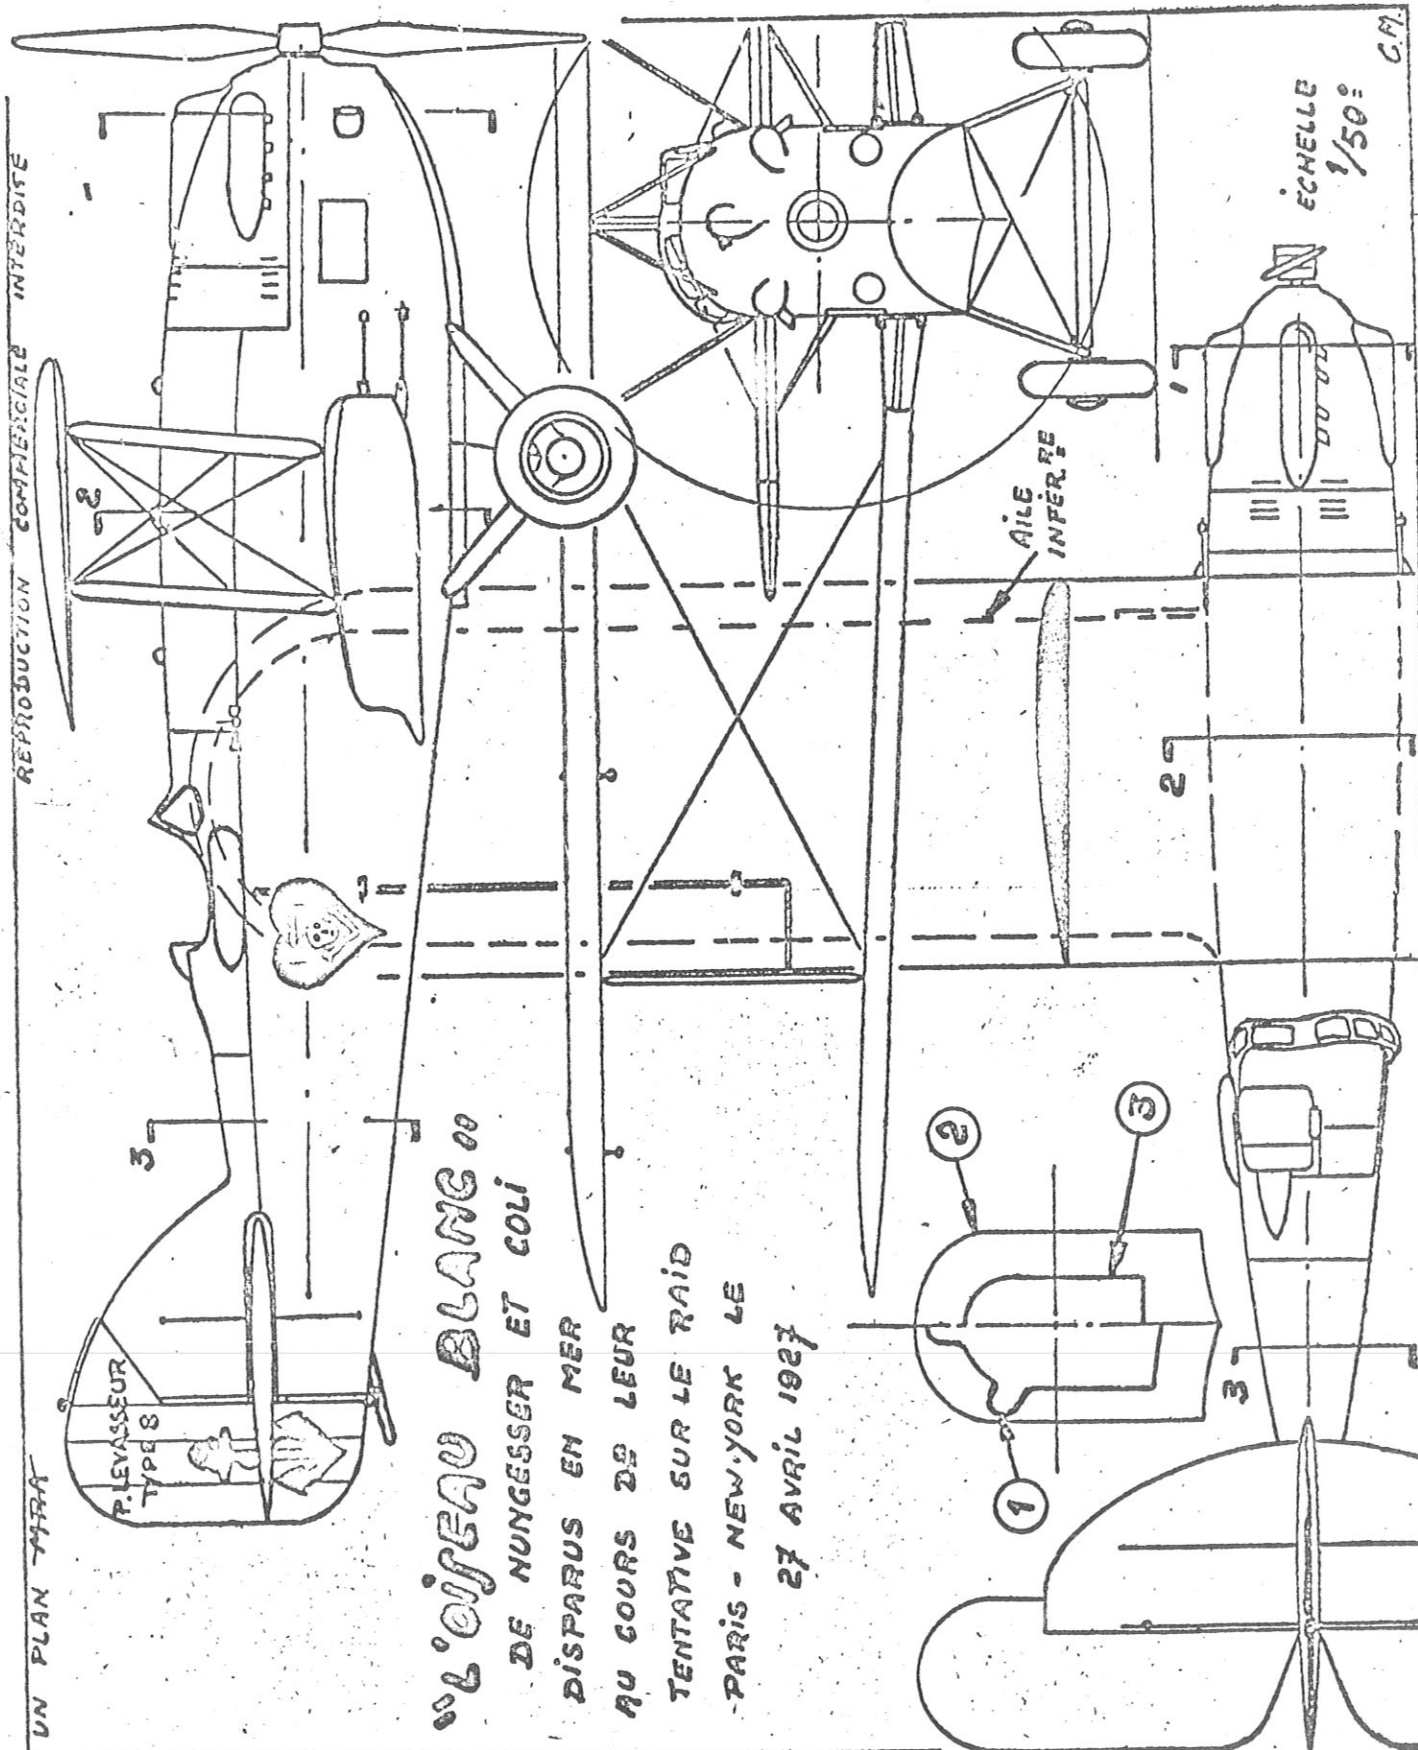 UN PLAN MRA
REPRODUCTION COMMERCIALE INTERDITE
P. LEVASSEUR
TYPE 8
3
2
1
"L'OISEAU BLANC"
DE NUNGESSER ET COLI
DISPARUS EN MER
AU COURS DE LEUR
TENTATIVE SUR LE RAID
PARIS - NEW-YORK LE
27 AVRIL 1927
AILE
INFÉR.RE
1
2
3
3
2
1
ÉCHELLE
1/50e
C.M.